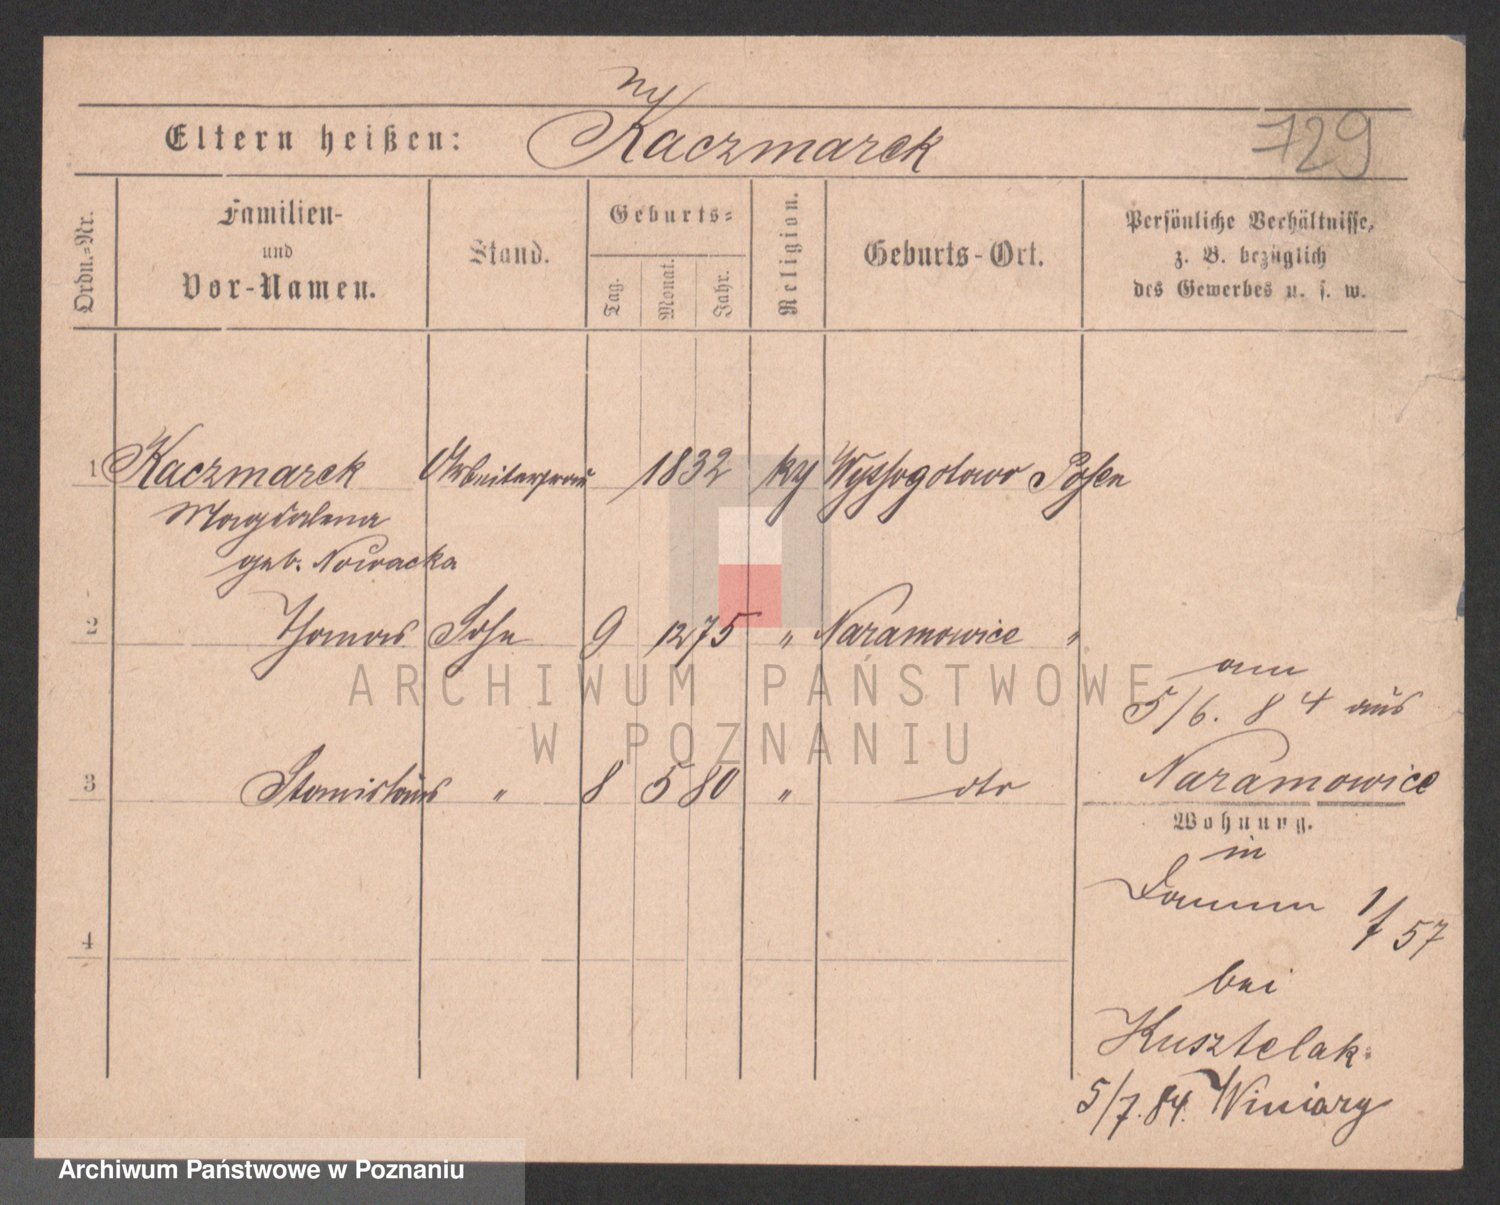 Eltern heißen: Kaczmarek
729
Ordn.-Nr.
Familien-
und
Vor-Namen.
Stand.
Geburts-
Tag.
Monat.
Jahr.
Religion.
Geburts-Ort.
Persönliche Verhältnisse,
z. B. bezüglich
des Gewerbes u. s. w.
1 Kaczmarek Arbeiterfrau 1832 Wyssogotowo Posen
Magdalena
geb. Nowacka
2 Thomas Sohn 9 12 75 " Naramowice "
am
5/6. 84 aus
3 Stanislaus " 8 5 80 " dto Naramowice
Wohnung.
in
1/ 57
4
bei
Kusztelak
5/7. 84. Winiary
ARCHIWUM PAŃSTWOWE
W POZNANIU
Archiwum Państwowe w Poznaniu